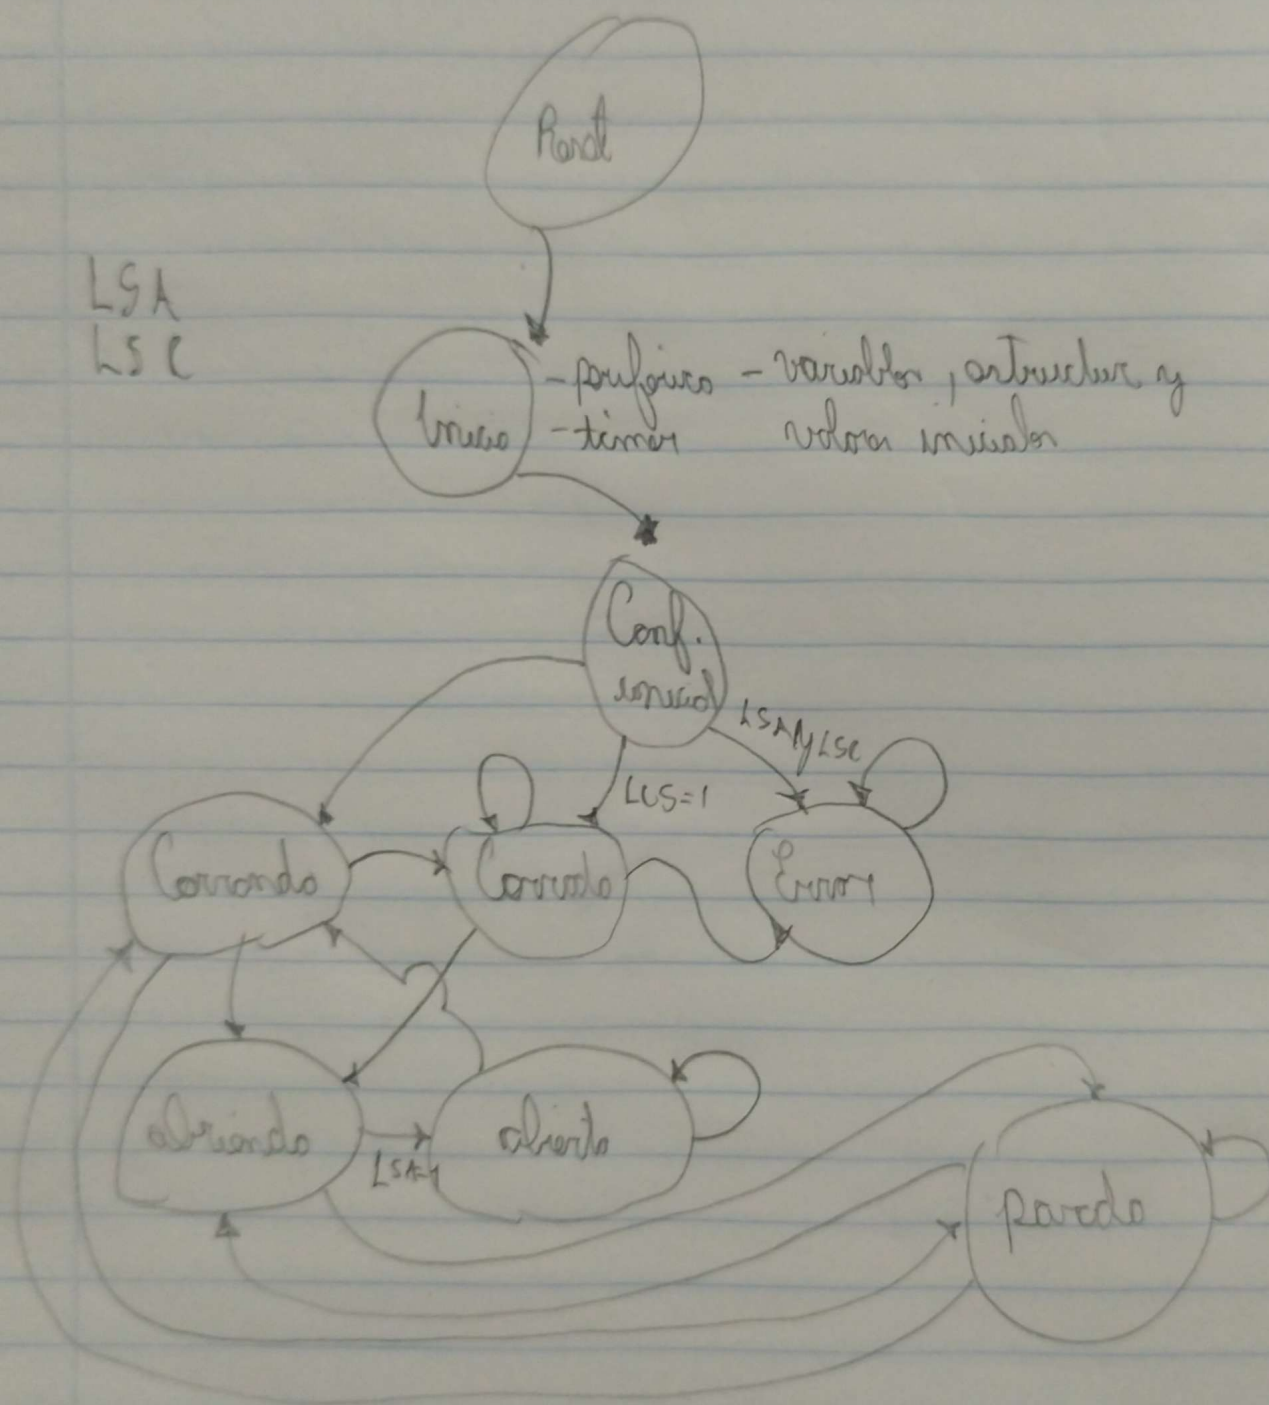 Reset
LSA
LSC
Inicio
- periferico - variables, estructur y
- timer valores iniciales
Conf.
inicial
LSA y LSC
LCS=1
Cerrando
Cerrado
Error
abriendo
LSA=1
abierto
parado